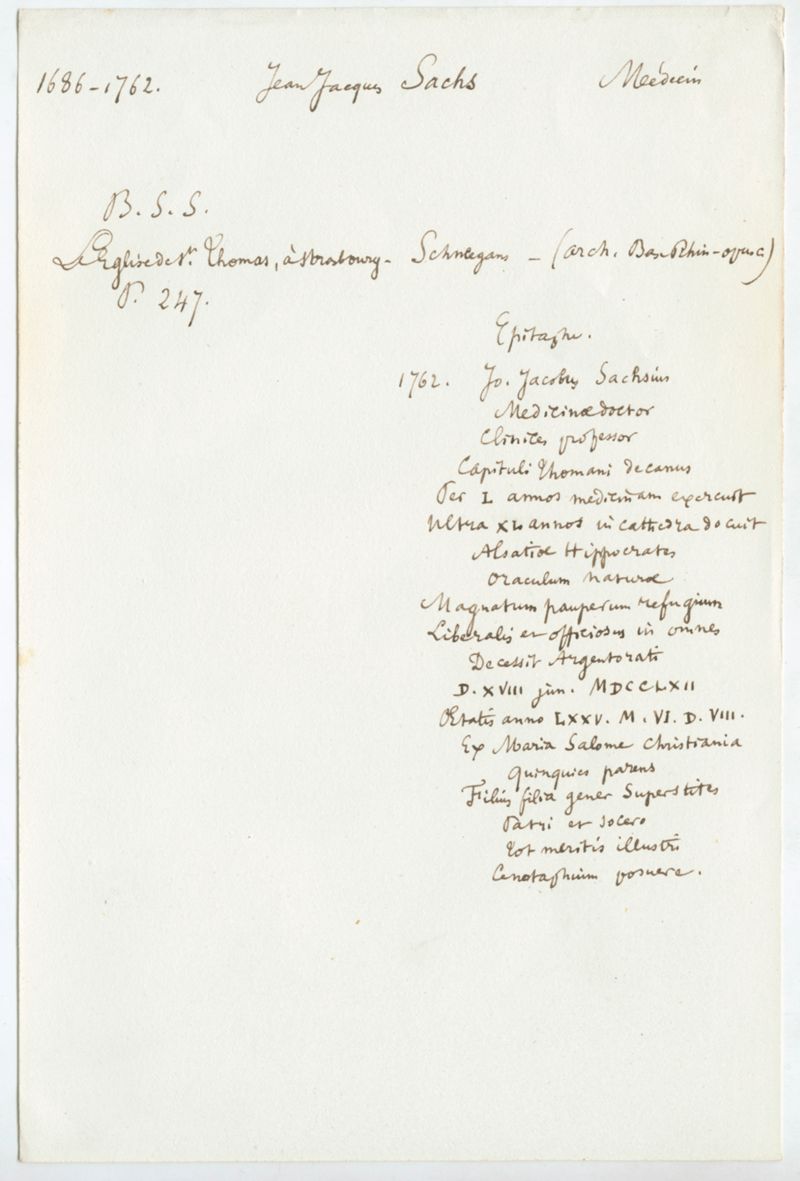 1686-1762. Jean Jacques Sachs Médecin
B. S. S.
L'Eglise de St. Thomas, à Strasbourg - Schneegans - (arch. Bas Rhin - opusc)
P. 247.
Epitaphe.
1762. Jo. Jacobus Sachsius
Medicinæ doctor
Clinices professor
Capituli Thomani decanus
Per L annos medicinam exercuit
Ultra XL annos in cathedra docuit
Alsatiæ Hippocrates
Oraculum naturæ
Magnatum pauperum refugium
Liberalis et officiosus in omnes
Decessit Argentorati
D. XVIII jun. MDCCLXII
Ætatis anno LXXV. M. VI. D. VIII.
Ex Maria Salome Christiania
Quinquies parens
Filius filia gener Superstites
Patri et socero
Tot meritis illustri
Cenotaphium posuere.